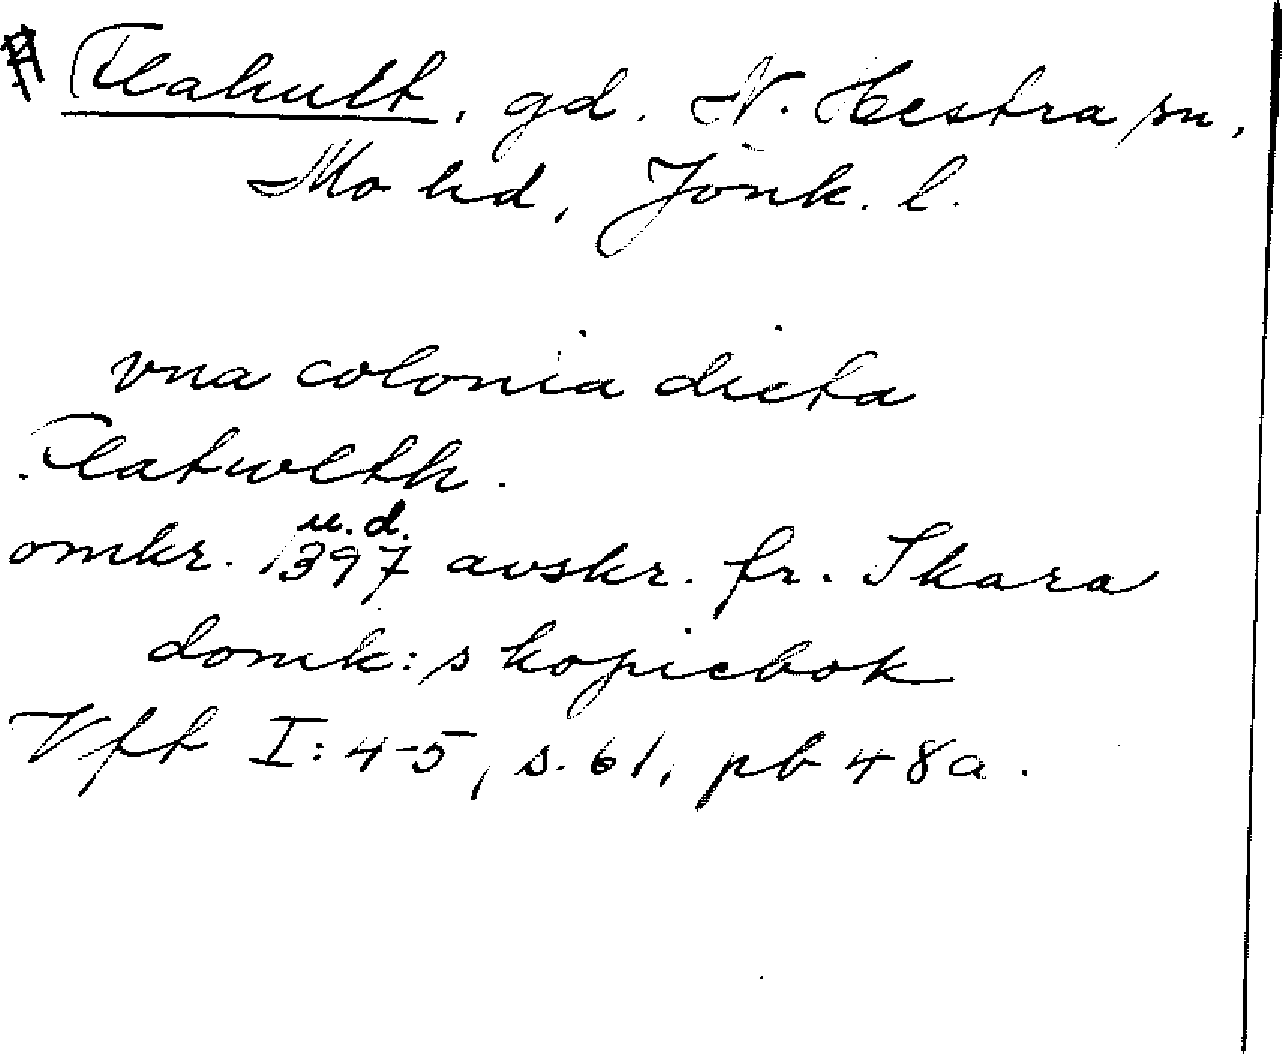 Flahult, gd. N. Hestra sn,
Mo hd, Jönk. l.
vna colonia dicta
Flatwlth.
u.d.
omkr. 1397 avskr. fr. Skara
domk:s kopiebok
Vft I:4-5, s. 61, pb 48a.